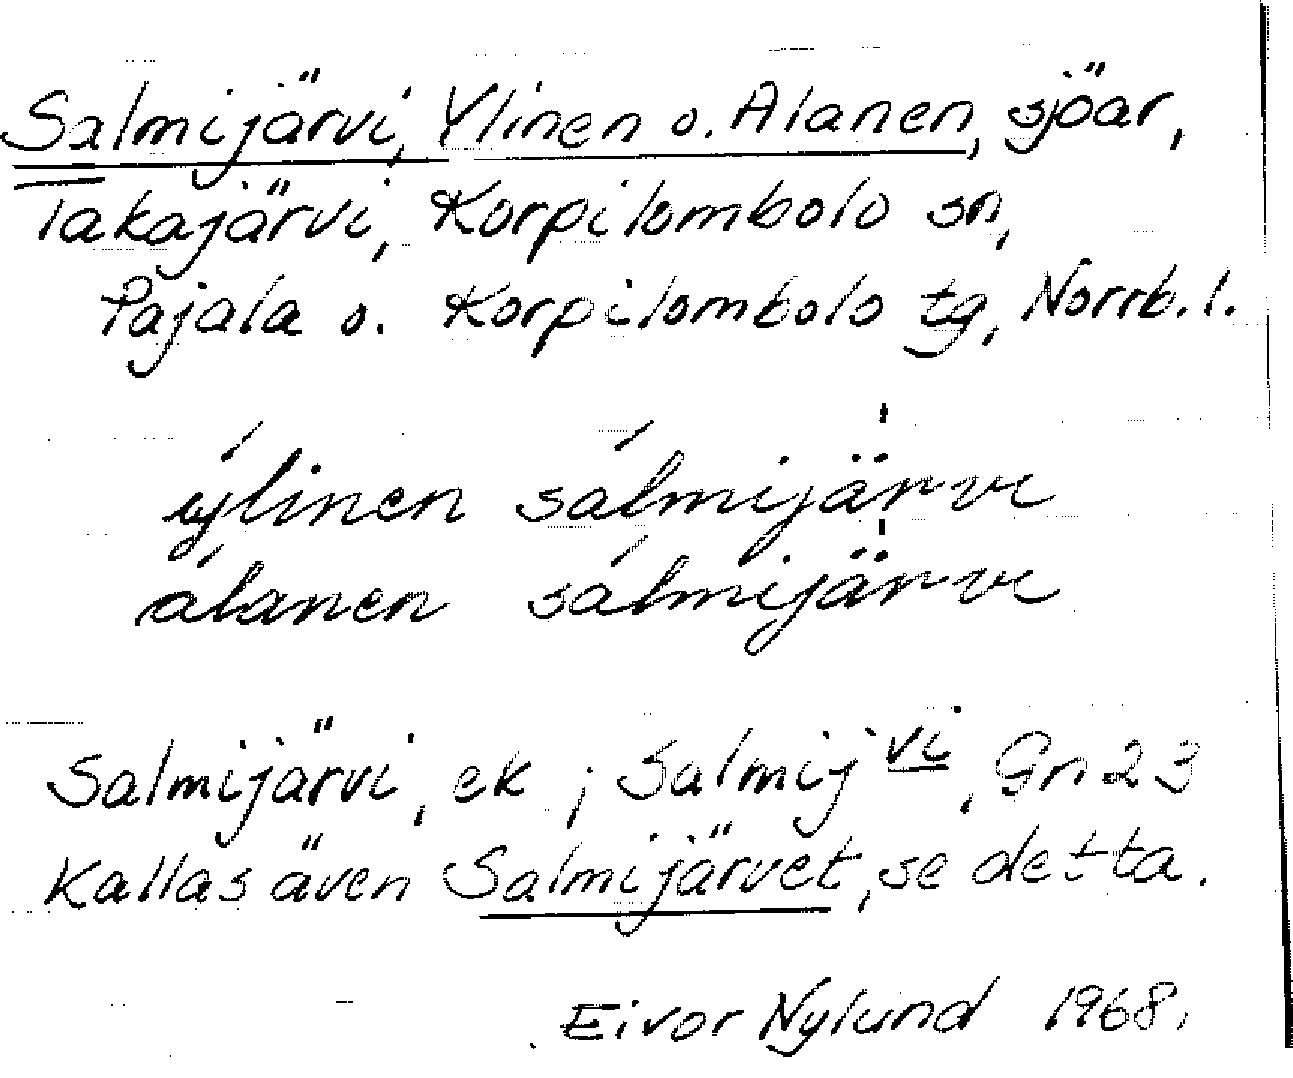 Salmijärvi, Ylinen o. Alanen, sjöar,
Takajärvi, Korpilombolo sn,
Pajala o. Korpilombolo tg, Norrb. l.
ýlinen sálmijärvi
álanen sálmijärvi
Salmijärvi, ek ; Salmij vi, Gn 23
Kallas även Salmijärvet, se detta.
Eivor Nylund 1968.